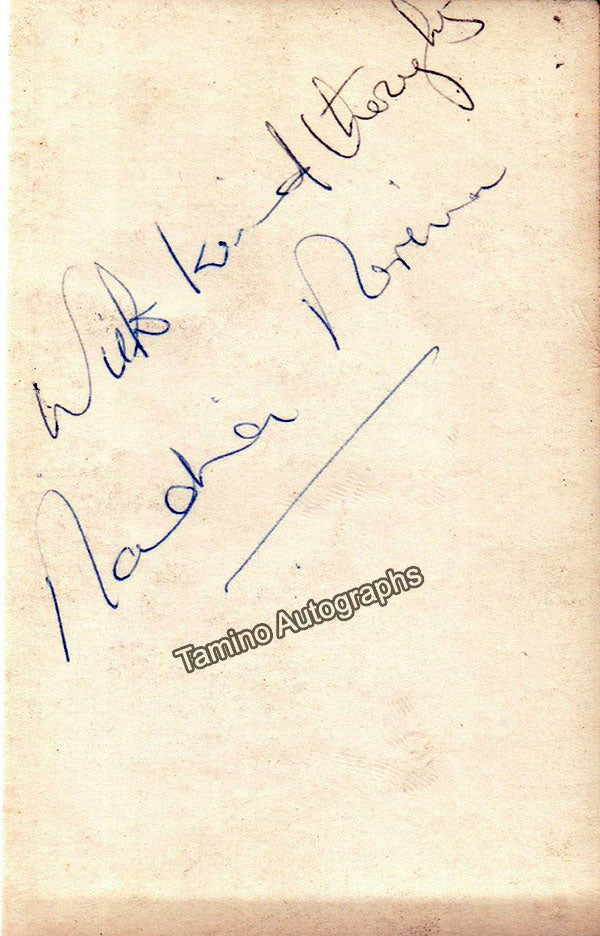 With kind thoughts
Nadia Nerina
Tamino Autographs